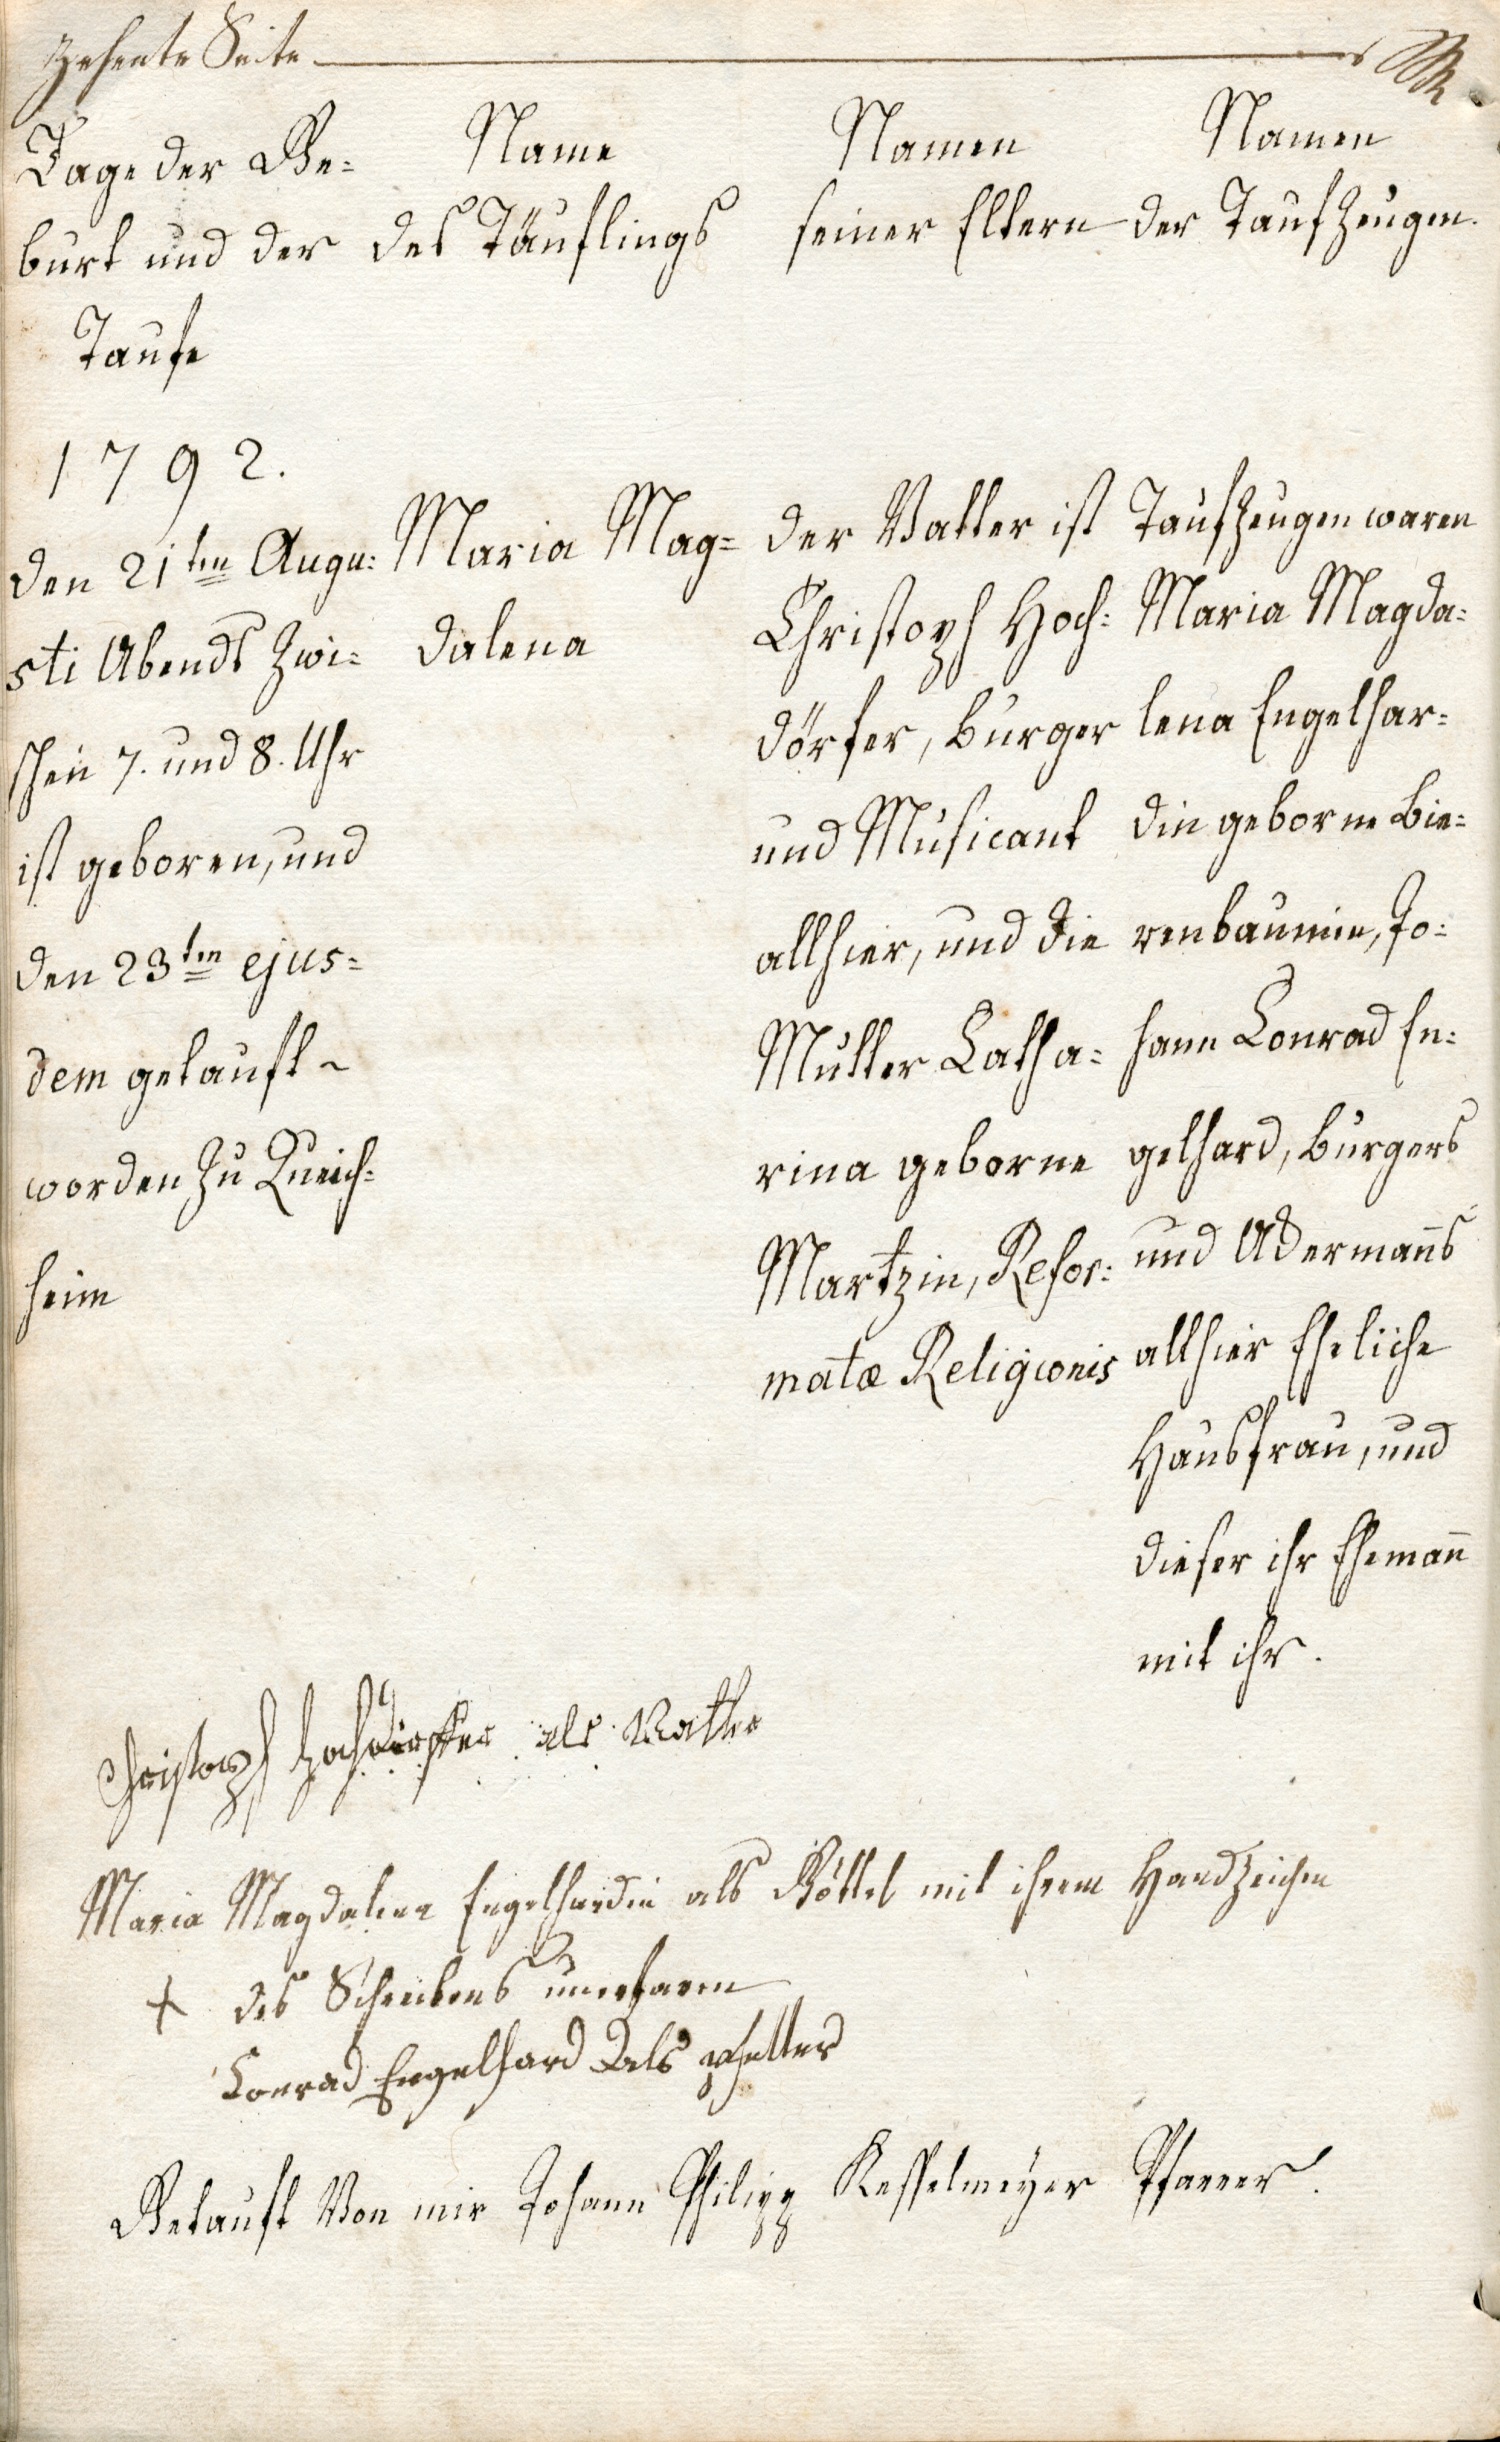 Zehente Seite
Tage der Ge=
burt und der
Taufe
1792.
den 21ten Augu:
sti Abends zwi=
schen 7. und 8. Uhr
ist geboren, und
den 23ten ejus=
dem getauft
worden zu Queich=
heim
Name
des Täuflings
Maria Mag=
dalena
Namen
seiner Eltern
der Vatter ist
Christoph Hoch:
dörfer, burger
und Musicant
allhier, und die
Mutter Catha=
rina geborne
Martzin, Refor:
matæ Religionis
Namen
der Taufzeugen.
Taufzeugen waren
Maria Magda:
lena Engelhar=
din geborne Bie=
renbaumin, Jo:
hann Conrad En:
gelhard, burgers
und Ackermañs
allhier Eheliche
Hausfrau, und
dieser ihr Ehemañ
mit ihr.
Christoph Hochdörffer als Vatter
Maria Magdalena Engelhardin als Göttel mit ihrem Handzeichen
+ des Schreibens unerfaren
Conrad Engelhard als pfetter
Getauft Von mir Johann Philipp Kesselmeyer Pfarrer.